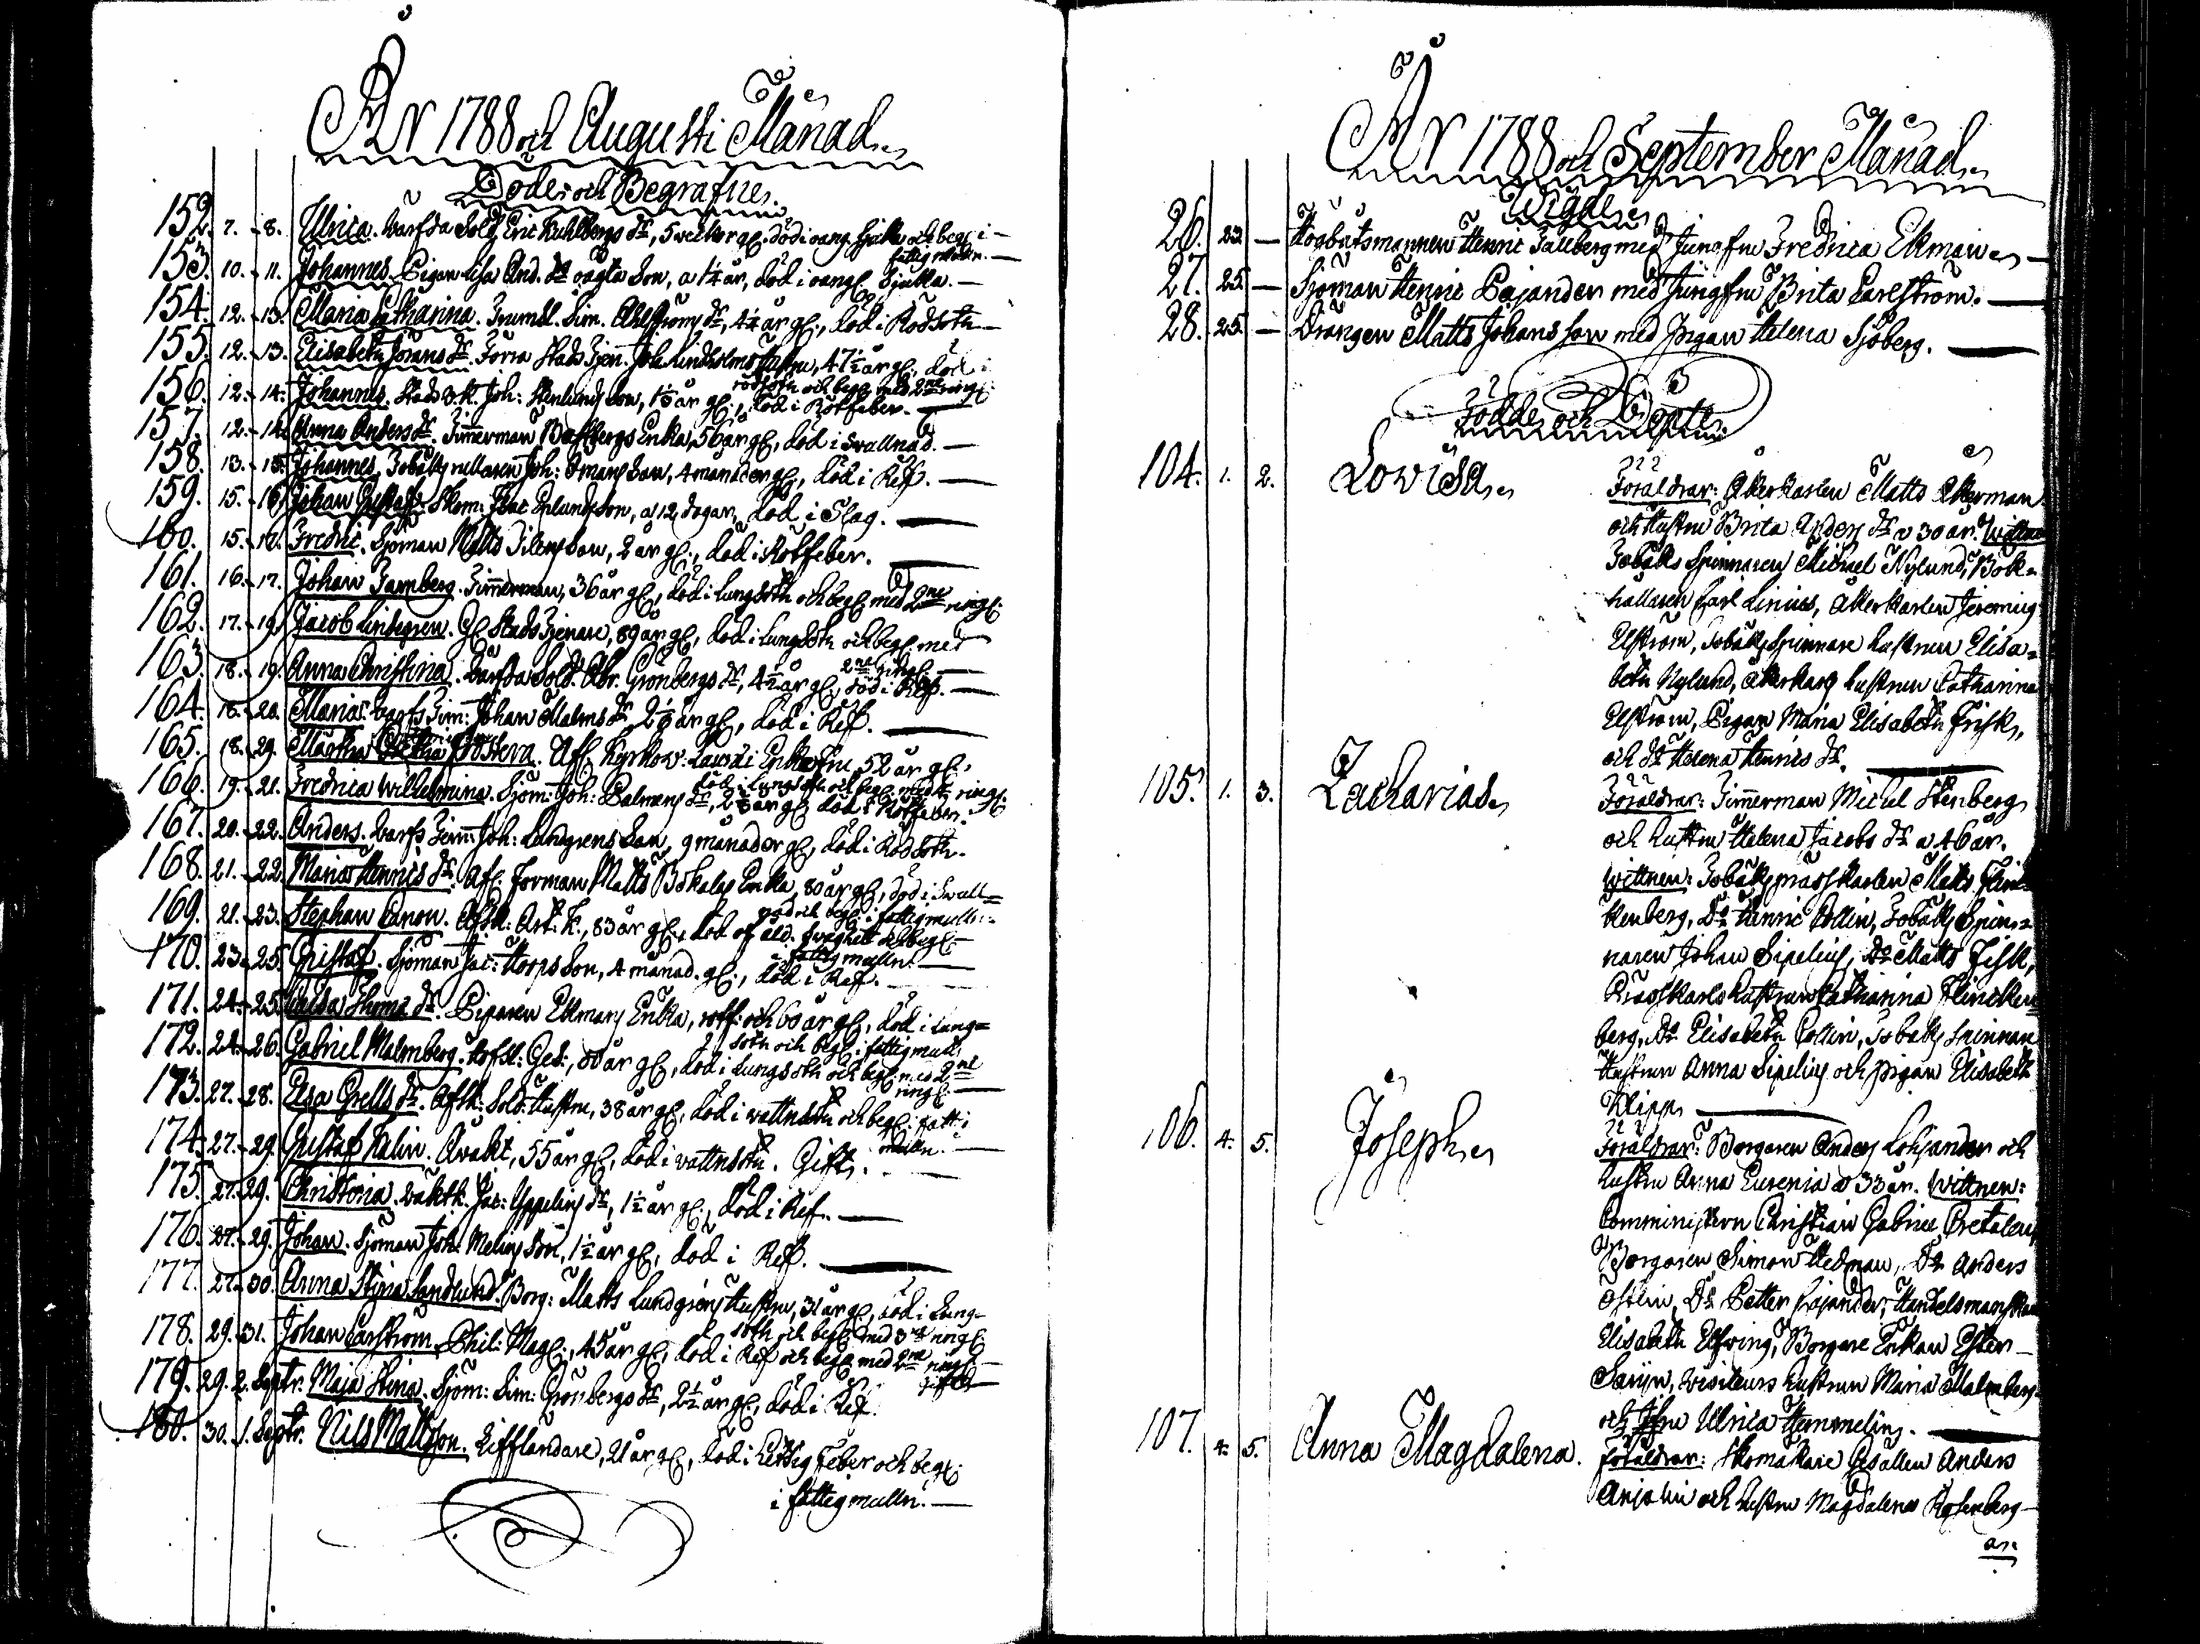 År 1788 och Augusti Månad.
Döde och Begrafne.
152. 7. 8. Ulrica. Varfs Sold. Eric Kuhlbergs dr, 5 veckor gl. död i oang. sjukd. och begr. i
fattigmulln.
153. 10. 11. Johannes. Pigan Lisa And. dr oägta Son, a 1¼ år, död i oangl. Sjukdo.
154. 12. 13. Maria Catharina. Trumsl. Sim. Ahlströms dr, 4½ år gl., död i Rödsoth.
155. 12. 13. Elisabeth Jörans dr. Förra Stads Tjen. Joh. Lindholms Hustru, 47½ år gl., död i
rödsoth och begr. med 2ne ringl.
156. 12. 14. Johannes. Stads v.k. Joh: Stenlunds Son, år gl., död i Rötfeber.
157. 12. 14. Anna Anders dr. Timmerman Enka, 56 år gl., död i Svallnad.
158. 13. 15. Johannes. Joh: Ömans Son, 4 månader gl., död i Ref.
159. 15. 16. Johan Gustaf. Skom: Isac Son, a 12 dagar, död i Slag.
160. 15. 17. Fredric. Sjöman Matts Son, 2 år gl., död i Rötfeber.
161. 16. 17. Johan Tamberg. Timmerman, 36 år gl., död i Lungsoth och begr. med 2ne ringl.
162. 17. 19. Jacob Lindegren. Gl. Stads Tjenare, 89 år gl., död i Lungsoth och begr. med
2ne ringl.
163. 18. 19. Anna Christina. Varfs Sold. Abr. Grönbergs dr, 4½ år gl., död i Ref.
164. 18. 20. Maria. Varfs Tim: Johan Malms dr, år gl., död i Ref.
165. 18. 29. Afl. Kyrkow. Enkefru, 52 år gl.,
död i Lungsoth och begr. med ringl.
166. 19. 21. Fredrica Wilhelmina. Sjöm: Joh: Palmens dr, år gl. död i Rötfeber.
167. 20. 22. Anders. Varfs Tim: Joh: Lundgrens Son, 9 månader gl., död i Rödsoth.
168. 21. 22. Maria Henrics dr. Afl. Forman Matts Enka, 80 år gl., död i Swall=
nad och begr. i fattigmulln.
169. 21. 23. Stephan Canon. Afsk: Art. K., 83 år gl., död af åld. swaghet och begr.
i fattigmulln.
170. 23. 25. Gustaf. Sjöman Jac: Korps Son, 4 månad. gl., död i Ref.
171. 24. 25. Thoms dr. Piparen Ekmans Enka, och 60 år gl., död i Lung=
soth och begr. i fattigmull:
172. 24. 26. Gabriel Malmberg. Hofsl: Ges:, år gl., död i Lungsoth och begr. med 2ne
ringl.
173. 27. 28. Elsa Grells dr. Afsk: Sold. Hustru, 38 år gl., död i wattusoth och begr. i fatti
mulln.
174. 27. 29. Gustaf Halin. Åvakt, 55 år gl., död i wattusoth. Gift.
175. 27. 29. Christina. Vaktk. Jac: Uppelins dr, 1½ år gl., död i Ref.
176. 27. 29. Johan. Sjöman Joh. Melins Son, 1½ år gl., död i Ref.
177. 27. 30. Anna Stina Sandlund. Borg: Matts Lundgrens Hustru, 31 år gl., död i Lung-
soth och begr. med 3ne ringl.
178. 29. 31. Johan Carlström. Phil: Mag:, 45 år gl., död i Ref och begr. med 2ne ringl.
gift
179. 29. 2. Septr. Maja Stina. Sjöm: Sim: Grönbergs dr, 2½ år gl., död i Ref.
180. 30. 1. Septr. Nils Mattsson. Lifflandare, 21 år gl., död i Hetsig Feber och begr.
i fattigmulln.
År 1788 och September Månad.
Wigde.
26. 23. Högbåtsmannen Henric Fallberg med Jungfru Fredrica Ekman
27. 25. Sjöman Henric Pajander med Jungfru Brita Carlström.
28. 25. Drängen Matts Johansson med Pigan Helena Sjöberg.
Födde och Döpte.
104. 1. 2. Lovisa
Föräldrar: Åkerkarlen Matts Åkerman
och Hustru Brita Anders dr a 30 år. Wittne
Tobaks Spinnaren Michael Nylund, Bok=
hållaren Carl Linius, Åkerkarlen Jeremias
Elfström, Tobaks Spinnare hustrun Elisa=
beth Nylund, Åkerkarls hustrun Catharina
Elfström, Pigan Maria Elisabeth Frisk,
och dr Helena Henrics dr.
105. 1. 3. Zacharias
Föräldrar: Timmerman Michel Stenberg
och hustru Helena Jacobs dr a 46 år.
Wittnen: Tobaks prässkarlen Matts Flinc
kenberg, Do Henric Collin, Tobaks Spin=
naren Johan Sipelius, Do Matts Fisk,
Prässkarls hustrun Catharina Flincken
berg, Do Elisabeth Collin, Tobaks Spinnare
Hustrun Anna Sipelius och pigan Elisabeth
Klipp.
106. 4. 5. Joseph
Föräldrar: Borgaren Anders Lohjander och
hustru Anna Eurenia a 33 år. Wittnen:
Comministern Christian Gabriel Pretalen,
Borgaren Simon Hedman, Do Anders
Östlin, Do Petter Pajander, Handelsmans
Elisabeth Elfving, Borgare Enkan Ester
Sarijn, Visiteurs hustrun Maria Malmberg
och Jfru Ulrica Hemmelin.
107. 4. 5. Anna Magdalena.
Föräldrar: Skomakare Gesällen Anders
Anjalin och hustru Magdalena Rosenberg
a.